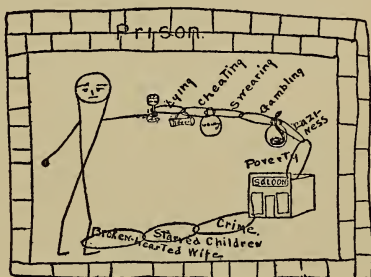 Prison.
Lying
Cheating
Swearing
Gambling
Lazi-
ness
Poverty
SALOON
Crime.
Starved Children
Broken-hearted Wife